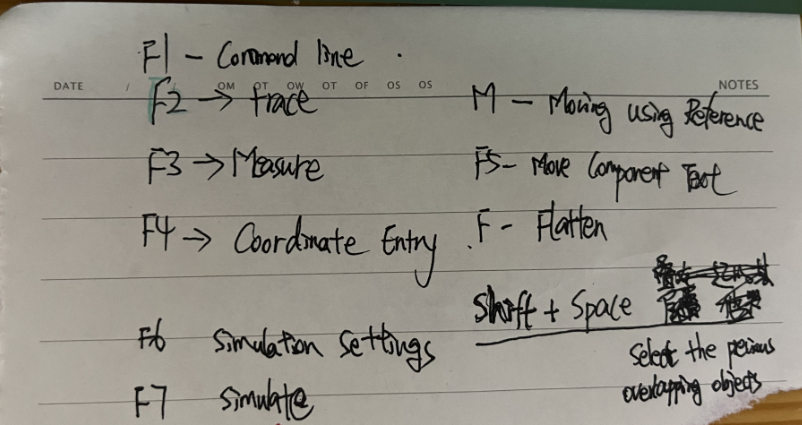 F1 - Command line
DATE / / OM OT OW OT OF OS OS NOTES
F2 → trace
M - Moving using Reference
F3 → Measure
F5 - Move Component Text
F4 → Coordinate Entry
F - Flatten
Shift + Space
F6 Simulation Settings
Select the perious
overlapping objects
F7 Simulate